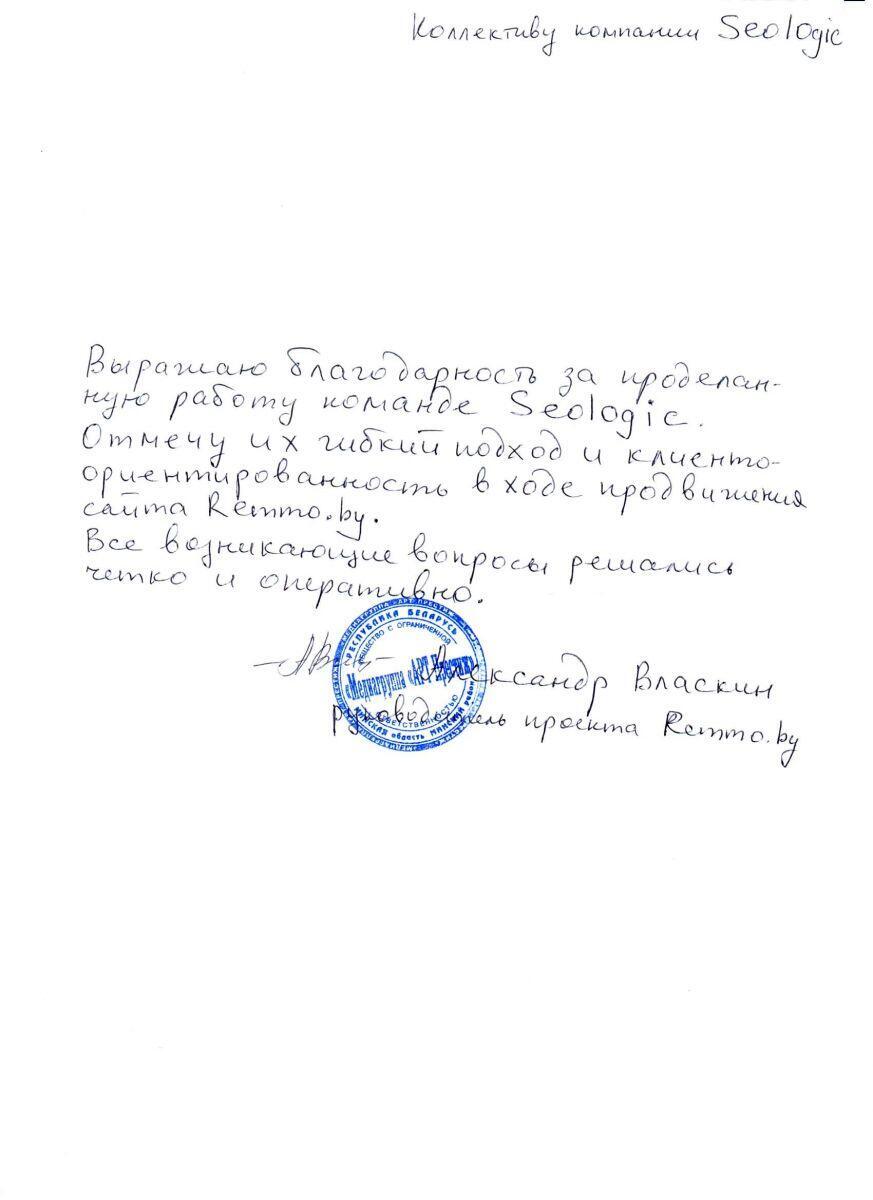 Коллективу компании Seologic
Выражаю благодарность за проделан-
ную работу команде Seologic.
Отмечу их гибкий подход и клиенто-
ориентированность в ходе продвижения
сайта Remmo.by.
Все возникающие вопросы решались
четко и оперативно.
РЕСПУБЛИКА БЕЛАРУСЬ
ОБЩЕСТВО С ОГРАНИЧЕННОЙ
«Медиагруппа «АРТ Престиж»
ОТВЕТСТВЕННОСТЬЮ
МИНСКАЯ область МИНСКИЙ район
Александр Власкин
руководитель проекта Remmo.by